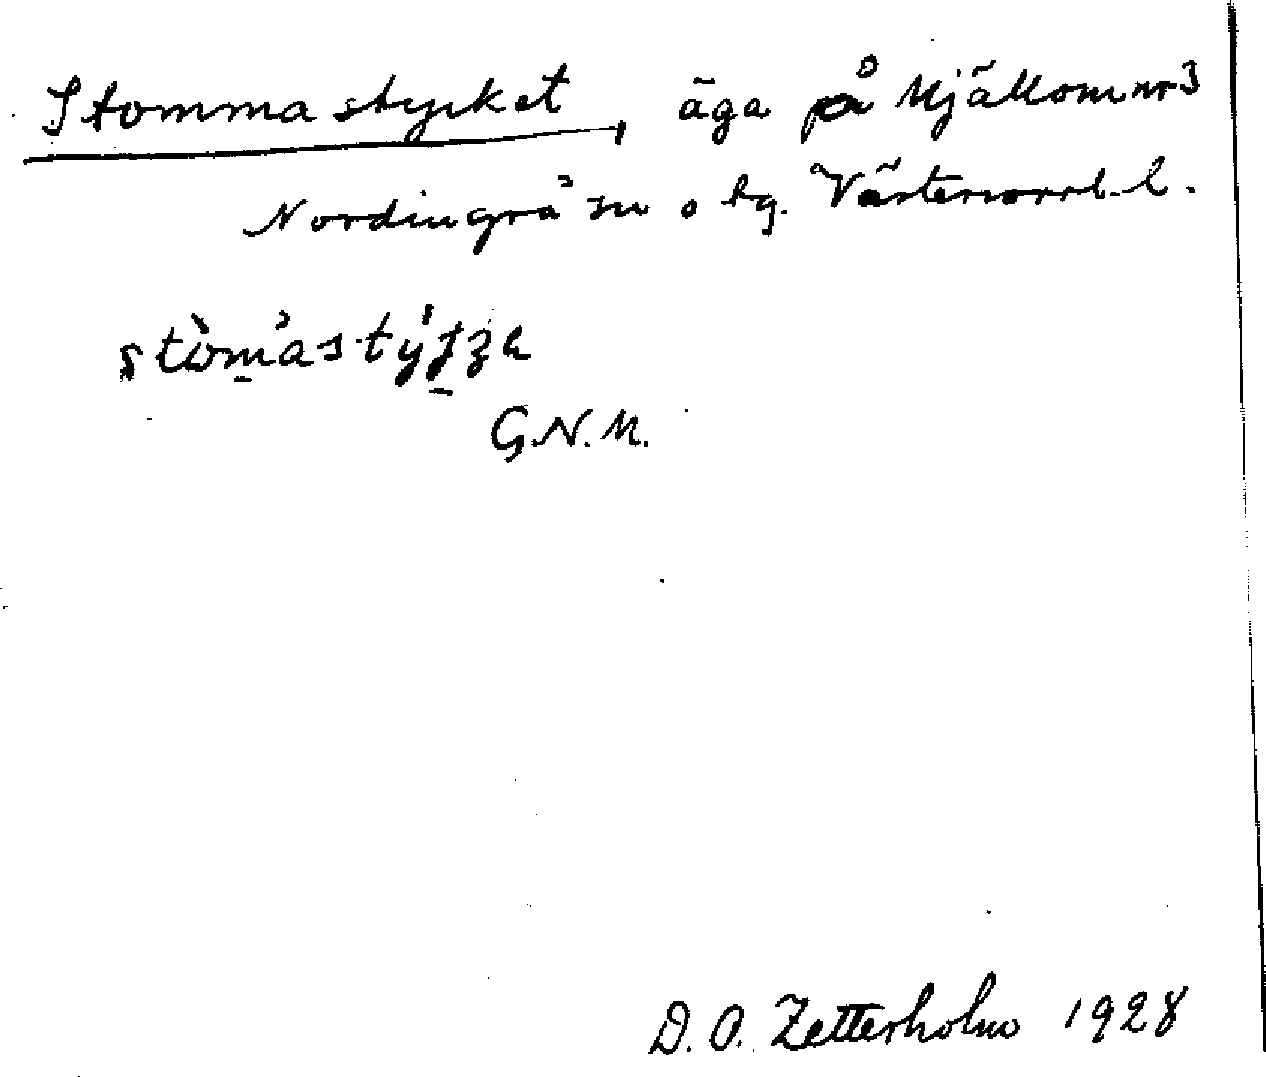 Stommastycket, äga på Mjällom nr 3
Nordingrå sn o hg. Västernorrl. l.
G.N.M.
D. O. Zetterholm 1928